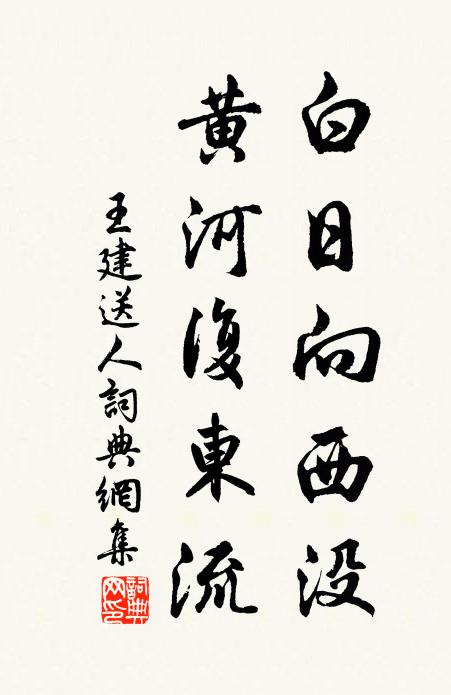 白日向西没
黃河復東流
王建送人詞典網集
詞典網印